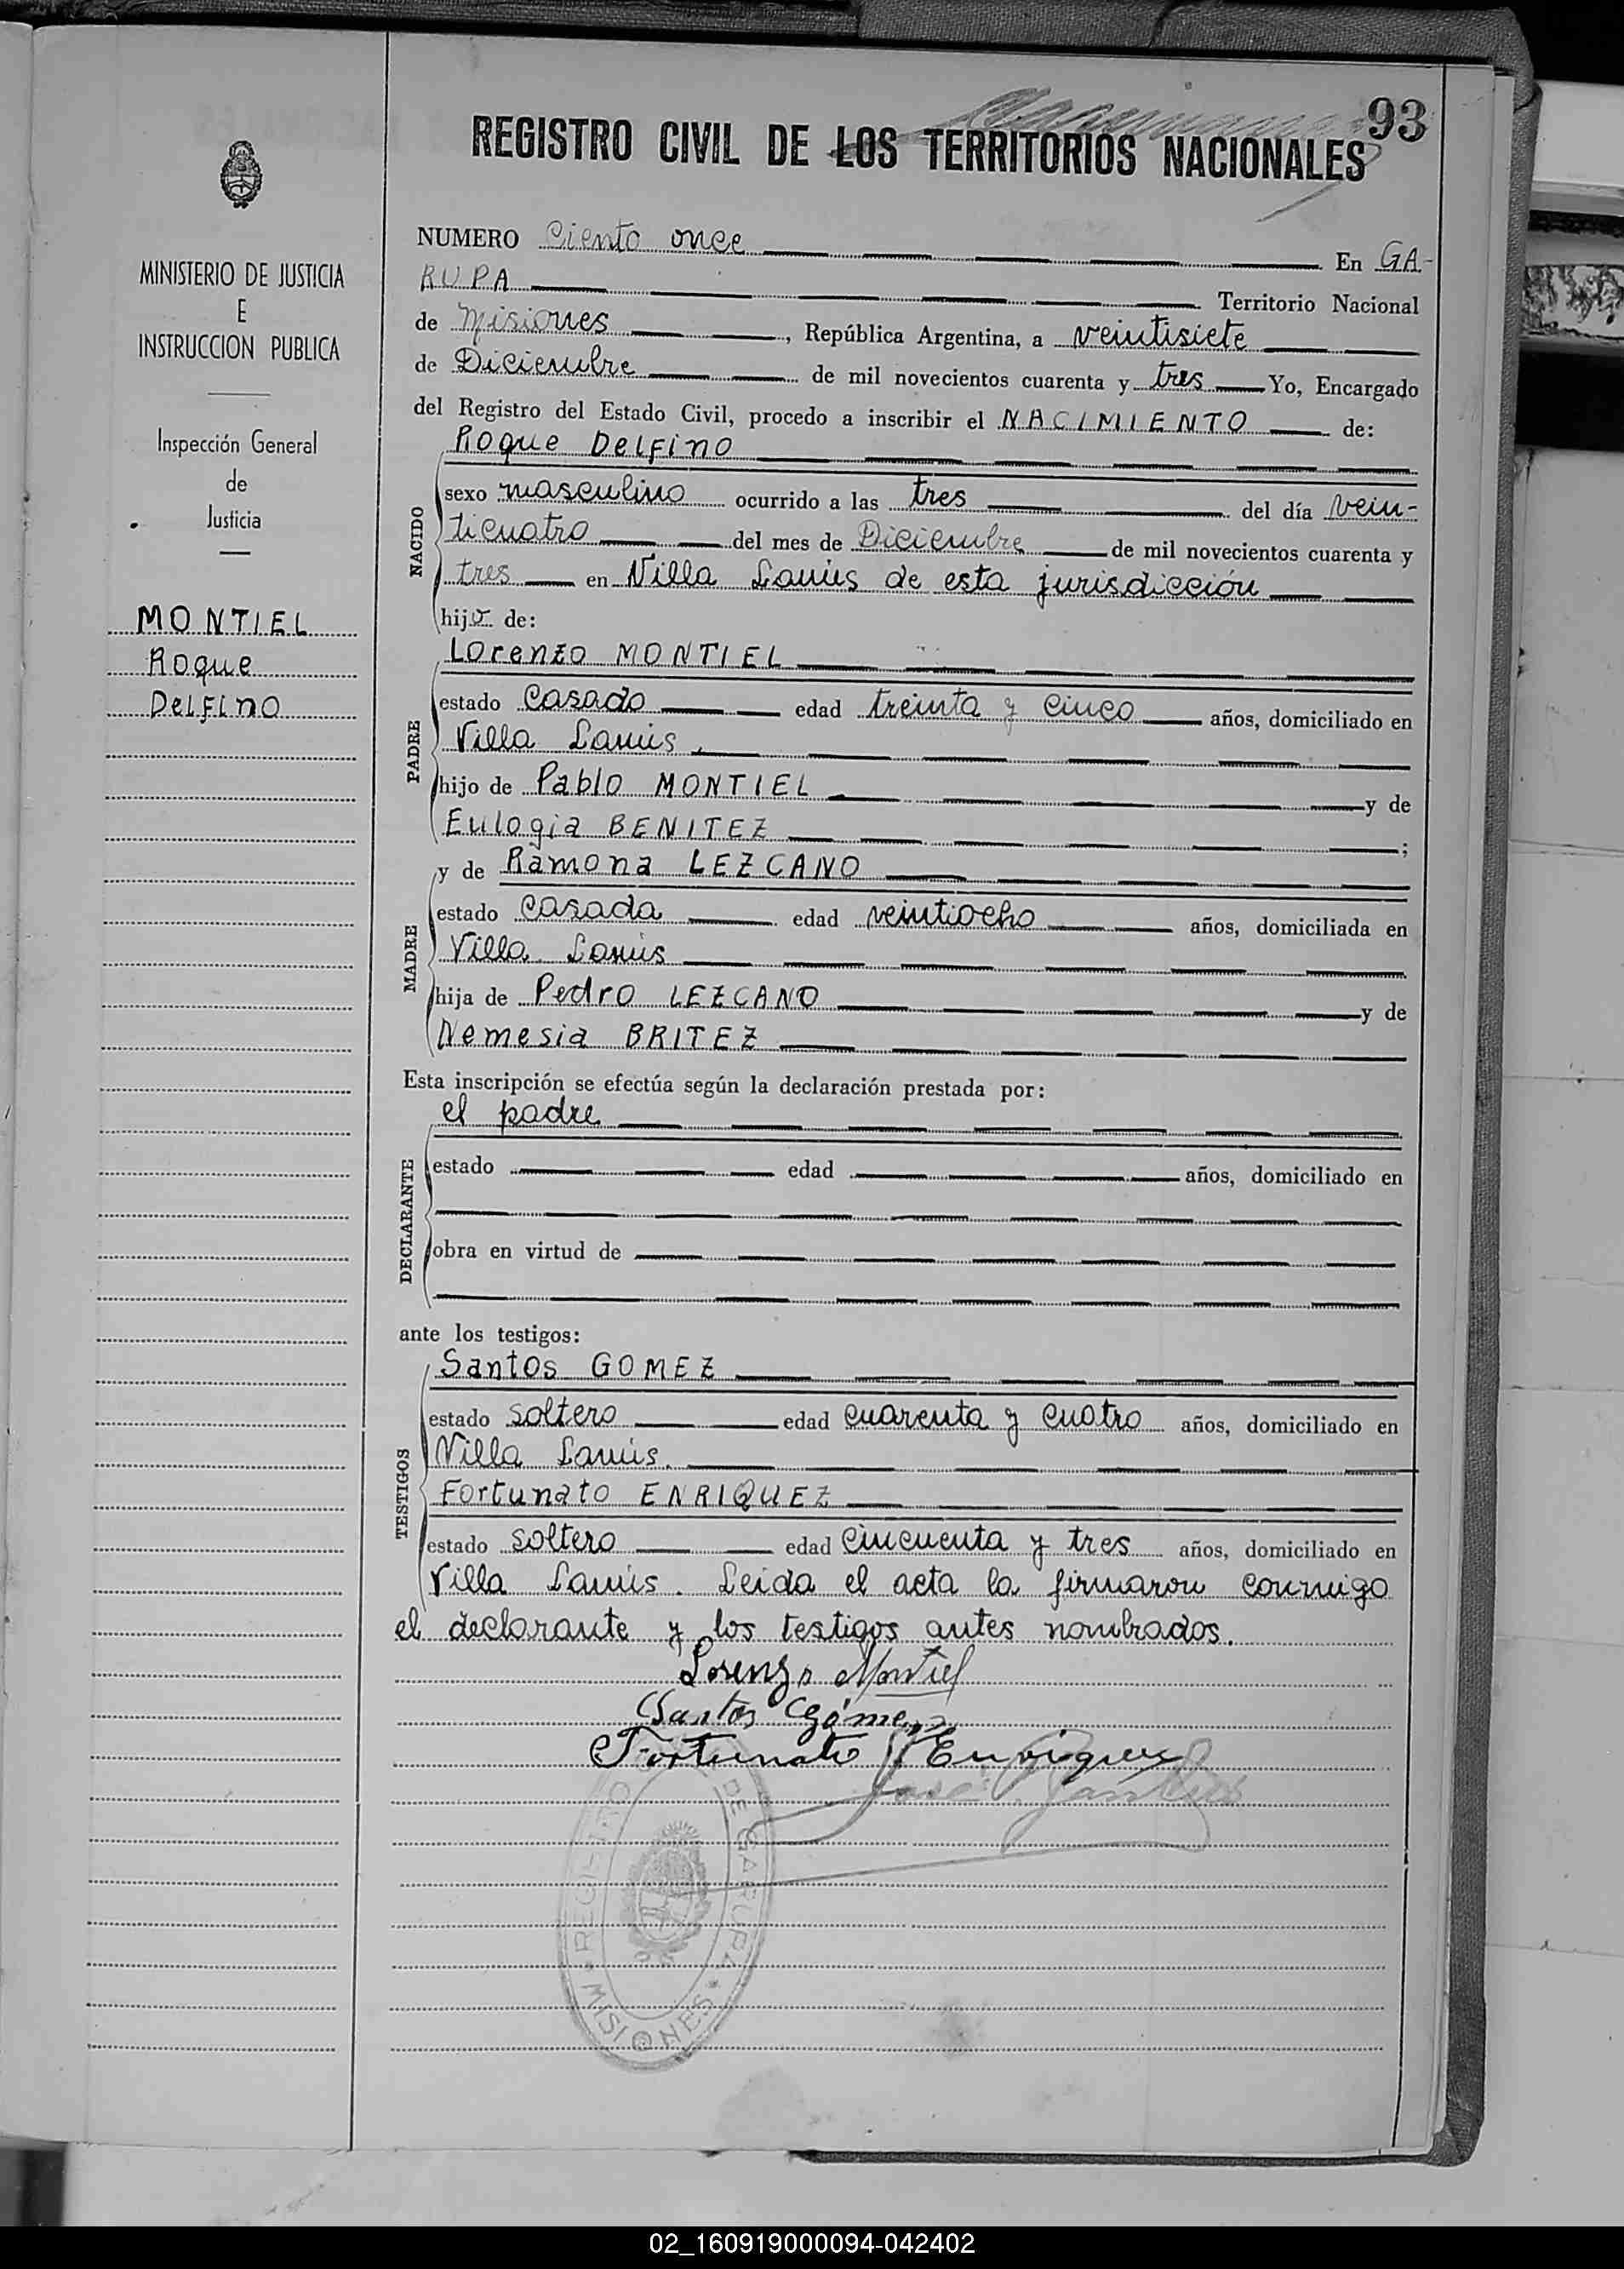 93
REGISTRO CIVIL DE LOS TERRITORIOS NACIONALES
MINISTERIO DE JUSTICIA
E
INSTRUCCION PUBLICA
Inspección General
de
Justicia
MONTIEL
Roque
Delfino
NUMERO Ciento once En GA-
RUPA Territorio Nacional
de Misiones, República Argentina, a veintisiete
de Diciembre de mil novecientos cuarenta y tres Yo, Encargado
del Registro del Estado Civil, procedo a inscribir el NACIMIENTO de:
Roque Delfino
NACIDO
sexo masculino ocurrido a las tres del día vein-
ticuatro del mes de Diciembre de mil novecientos cuarenta y
tres en Villa Lanús de esta jurisdicción
hijo de:
Lorenzo MONTIEL
PADRE
estado casado edad treinta y cinco años, domiciliado en
Villa Lanús.
hijo de Pablo MONTIEL y de
Eulogia BENITEZ ;
y de Ramona LEZCANO
MADRE
estado casada edad veintiocho años, domiciliada en
Villa Lanús
hija de Pedro LEZCANO y de
Nemesia BRITEZ
Esta inscripción se efectúa según la declaración prestada por:
el padre
DECLARANTE
estado edad años, domiciliado en
obra en virtud de
ante los testigos:
Santos GOMEZ
TESTIGOS
estado soltero edad cuarenta y cuatro años, domiciliado en
Villa Lanús.
Fortunato ENRIQUEZ
estado soltero edad cincuenta y tres años, domiciliado en
Villa Lanús. Leída el acta la firmaron conmigo
el declarante y los testigos antes nombrados.
Lorenzo Montiel
Santos Gómez
Fortunato Enriquez
REGISTRO DE GARUPA
MISIONES
02_160919000094-042402